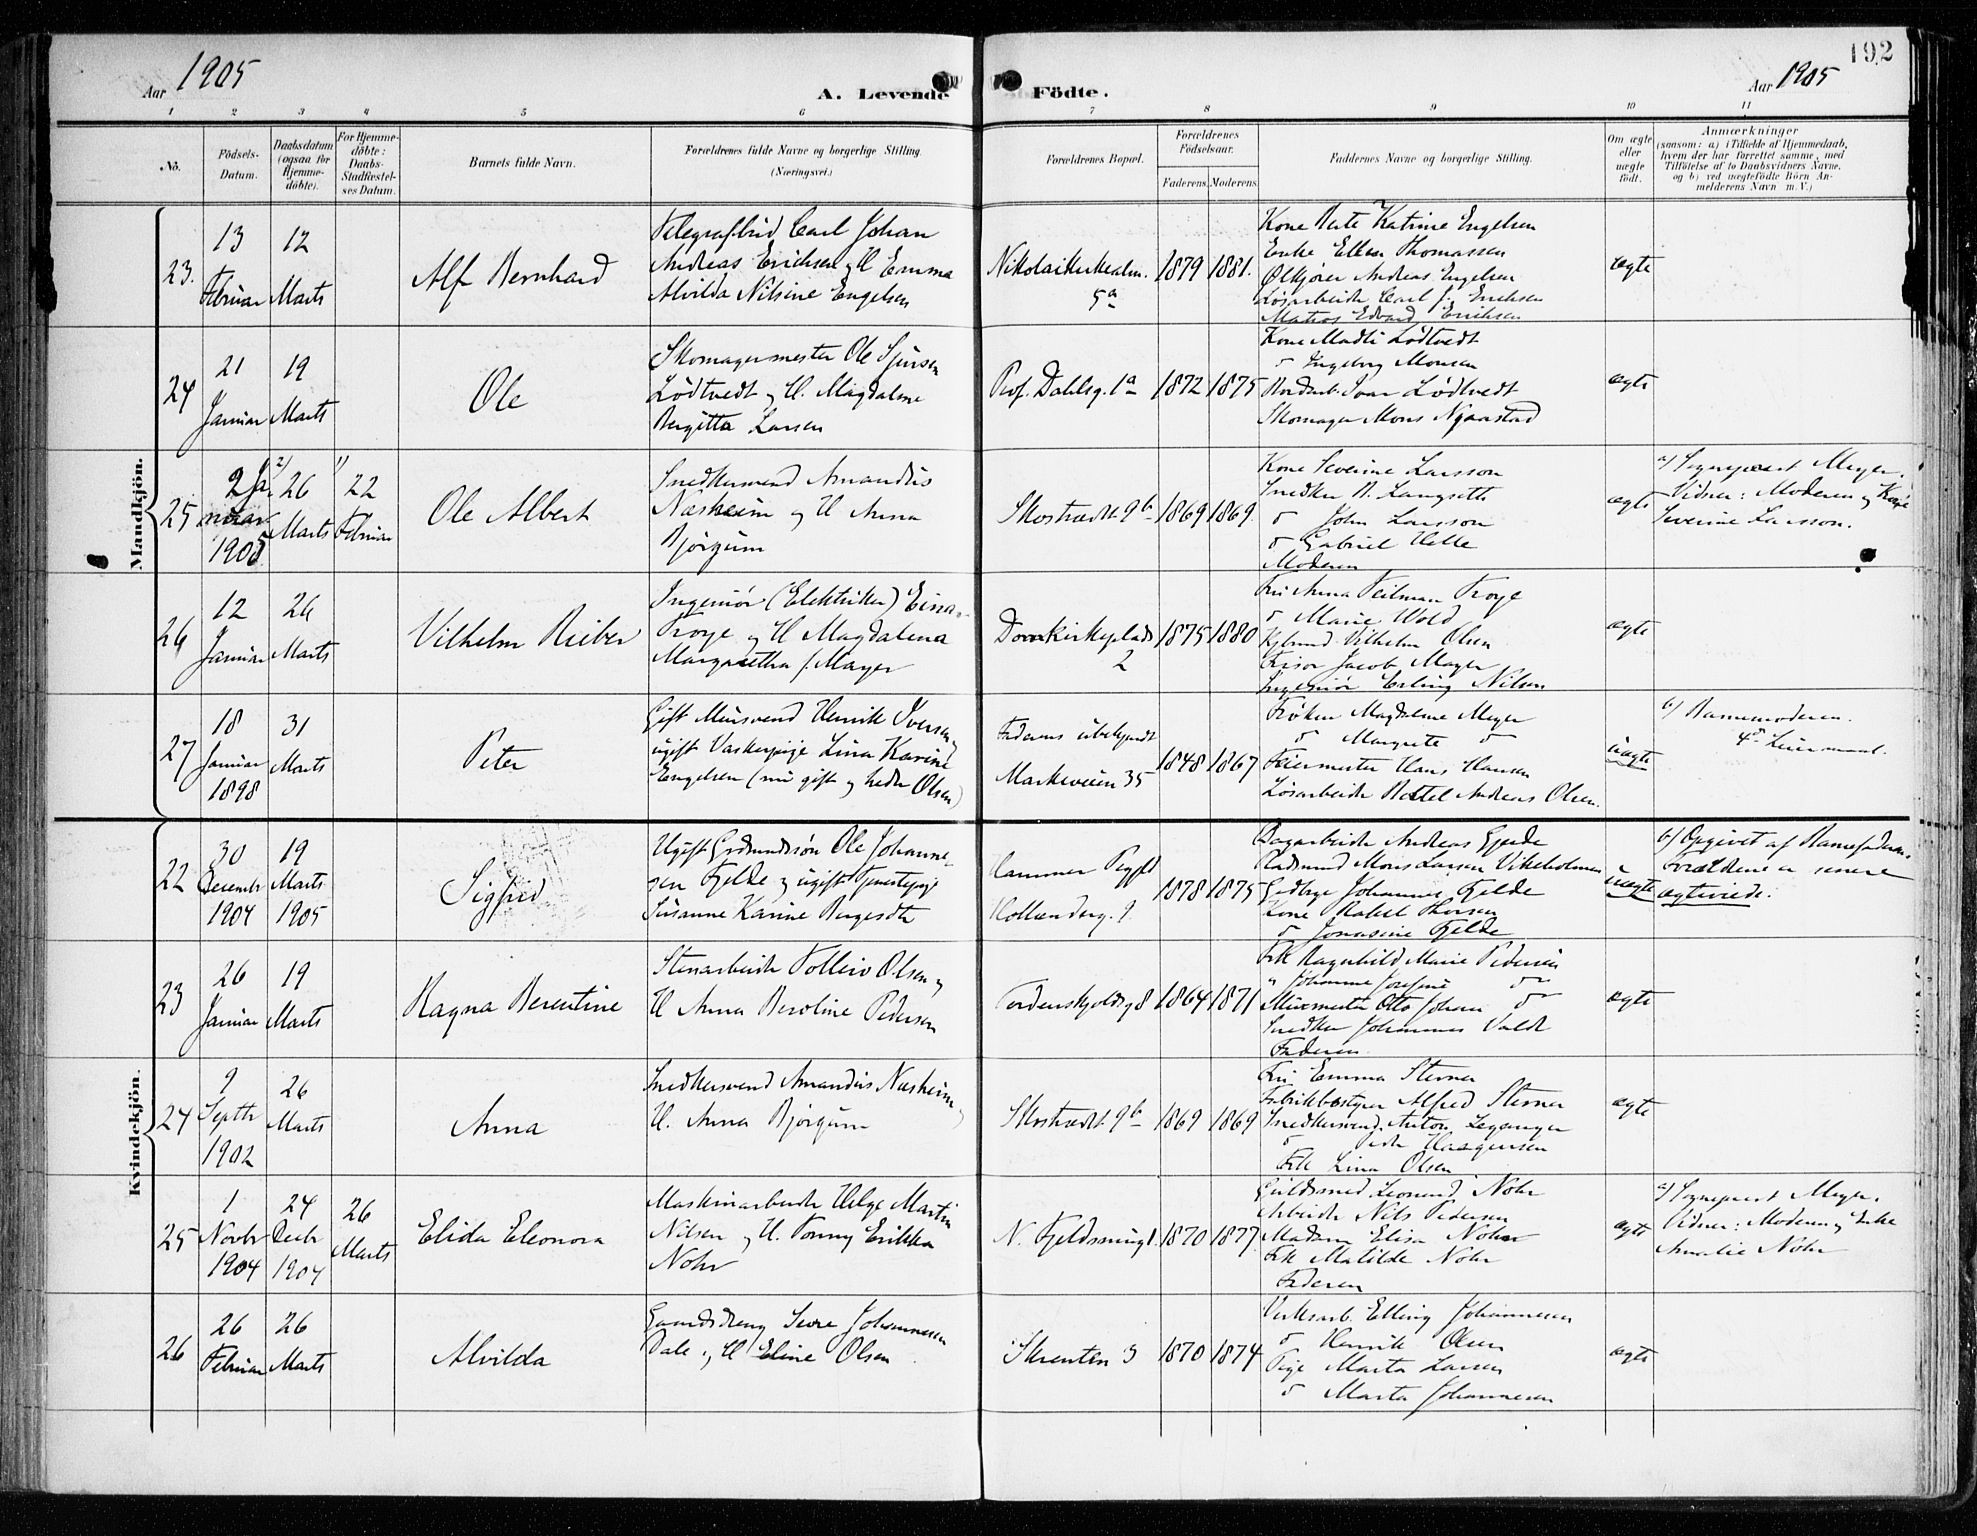 Aar 1905
A. Levende Födte.
192
Aar 1905
1 2 3 4 5 6 7 8 9 10 11
No.
Födsels-
Datum.
Daabsdatum
(ogsaa for
Hjemme-
döbte).
For Hjemme-
döbte:
Daabs-
Stadfæstel-
ses Datum.
Barnets fulde Navn.
Forældrenes fulde Navne og borgerlige Stilling.
(Næringsvei.)
Forældrenes Bopæl.
Forældrenes
Födselsaar.
Faderens. Moderens.
Faddernes Navne og borgerlige Stilling.
Om ægte
eller
uægte
födt.
Anmærkninger
(saasom: a) i Tilfælde af Hjemmedaab,
hvem der har forrettet samme, med
Tilföielse af to Daabsvidners Navne,
og b) ved uægtefödte Börn An-
melderens Navn m. V.)
Mandkjön.
23.
13
Februar
12
Marts
Alf Bernhard
Telegrafbud Carl Johan
Andreas Erichsen og H. Emma
Alvilda Nilsine Engelsen
Nikolaikirkealm.
5a
1879
1881.
Kone Berte Katrine Engelsen
Enke Ellen Thomassen
Ølkjører Andreas Engelsen
Løsarbeider Carl J. Erichsen
Matros Edvard Erichsen
ægte
24
21
Januar
19
Marts
Ole
Skomagermester Ole Sjursen
Lödtvedt og H. Magdalene
Bergitta Larsen
Prof. Dahlsg. 1a
1872
1875
Kone Madli Lødtvedt
do Ingeborg Monsen
Jordarb. Ivar Lødtvedt
Skomager Mons Nygaastad
ægte
25
2 Ja-
nuar
1905
2) 26
Marts
1) 22
Februar
Ole Albert
Snedkersvend Amandus
Næsheim og H Anna
Bjørgum
Skostrædet 9b
1869
1869.
Kone Severine Larsson
Snedker B. Langseth
do John Larsson
do Gabriel Helle
Moderen
ægte
a) Sognepræst Meyer.
Vidner: Moderen og Kone
Severine Larsson.
26
12
Januar
26
Marts
Vilhelm Rieber
Ingeniør (Elektriker) Einar
Troye og H Magdalena
Margaretha f. Mayer
Domkirkeplads
2
1875
1880
Fru Anna Teilman Troye
do Marie Wold
Kjbmd. Vilhelm Olsen
Frisør Jacob Mayer
Ingeniør Erling Nilsen
ægte
27
18
Januar
1898
31
Marts
Peter
Gift Mursvend Henrik Iversen,
ugift Vaskerpige Lina Karine
Engelsen (nu gift og heder Olsen)
Faderens ubekjendt
Markeveien 35
1848
1867
Frøken Magdalene Meyer
do Margrete do
Feiermester Hans Hansen
Løsarbeider Bertel Andreas Olsen.
uægte
b) Barnemoderen.
4de Leiermaal.
Kvindekjön.
22
30
Decembr
1904
19
Marts
1905
Sigfrid
Ugift Grdmandssøn Ole Johanne-
sen Fjelde og ugift Tjenestepige
Susanne Karine Bergesdtr
Hammer Prgjld
Hollenderg. 9
1878
1875
Dagarbeider Andreas Gjerde
Baadsmand Mons Larsen Vikeholmen
Gaardbrger Johannes Fjelde
Kone Rakel Thorsen
do Jonasine Fjelde
uægte
b) Opgivet af Barnefaderen.
Forældrene er senere
ægteviede.
23
26
Januar
19
Marts
Ragna Berentine
Stenarbeider Tolleiv Olsen og
H Anna Beroline Pedersen
Tordenskjoldsg 8
1864
1871
Frk Ragnhild Marie Pedersen
" Johanne Josefine do
Murmester Otto Johan do
Snedker Johannes Valde
Faderen.
ægte
24
9
Septbr
1902
26
Marts
Anna
Snedkersvend Amandus Næsheim,
H. Anna Bjørgum
Skostrædet 9b
1869
1869
Fru Emma Sterner
Fabrikbestyrer Alfred Sterner
Snedkersvend. Anton Leganger
do Peder Haagensen
Frk Lina Olsen
ægte
25
1
Novbr
1904
24
Decbr
1904
26
Marts
Elida Eleonora
Maskinarbeider Helge Martin
Nilsen og H. Tonny Erikka
Nohr
N. Fjeldsmug 1
1870
1877
Guldsmed Leonard Nohr
Arbeider Nils Pedersen
Madam Elisa Nohr
Frk Matilde Nohr
Faderen
ægte
a) Sognepræst Meyer.
Vidner: Moderen og Enke
Amalie Nohr
26
26
Februar
26
Marts
Alvilda
Gaardsdreng Sevre Johannesen
Dale og H Eline Olsen
Skrenten 3
1870
1874
Verksarb. Elling Johannesen
do Henrik Olsen
Pige Marta Larsen
do Marta Johannesen
ægte